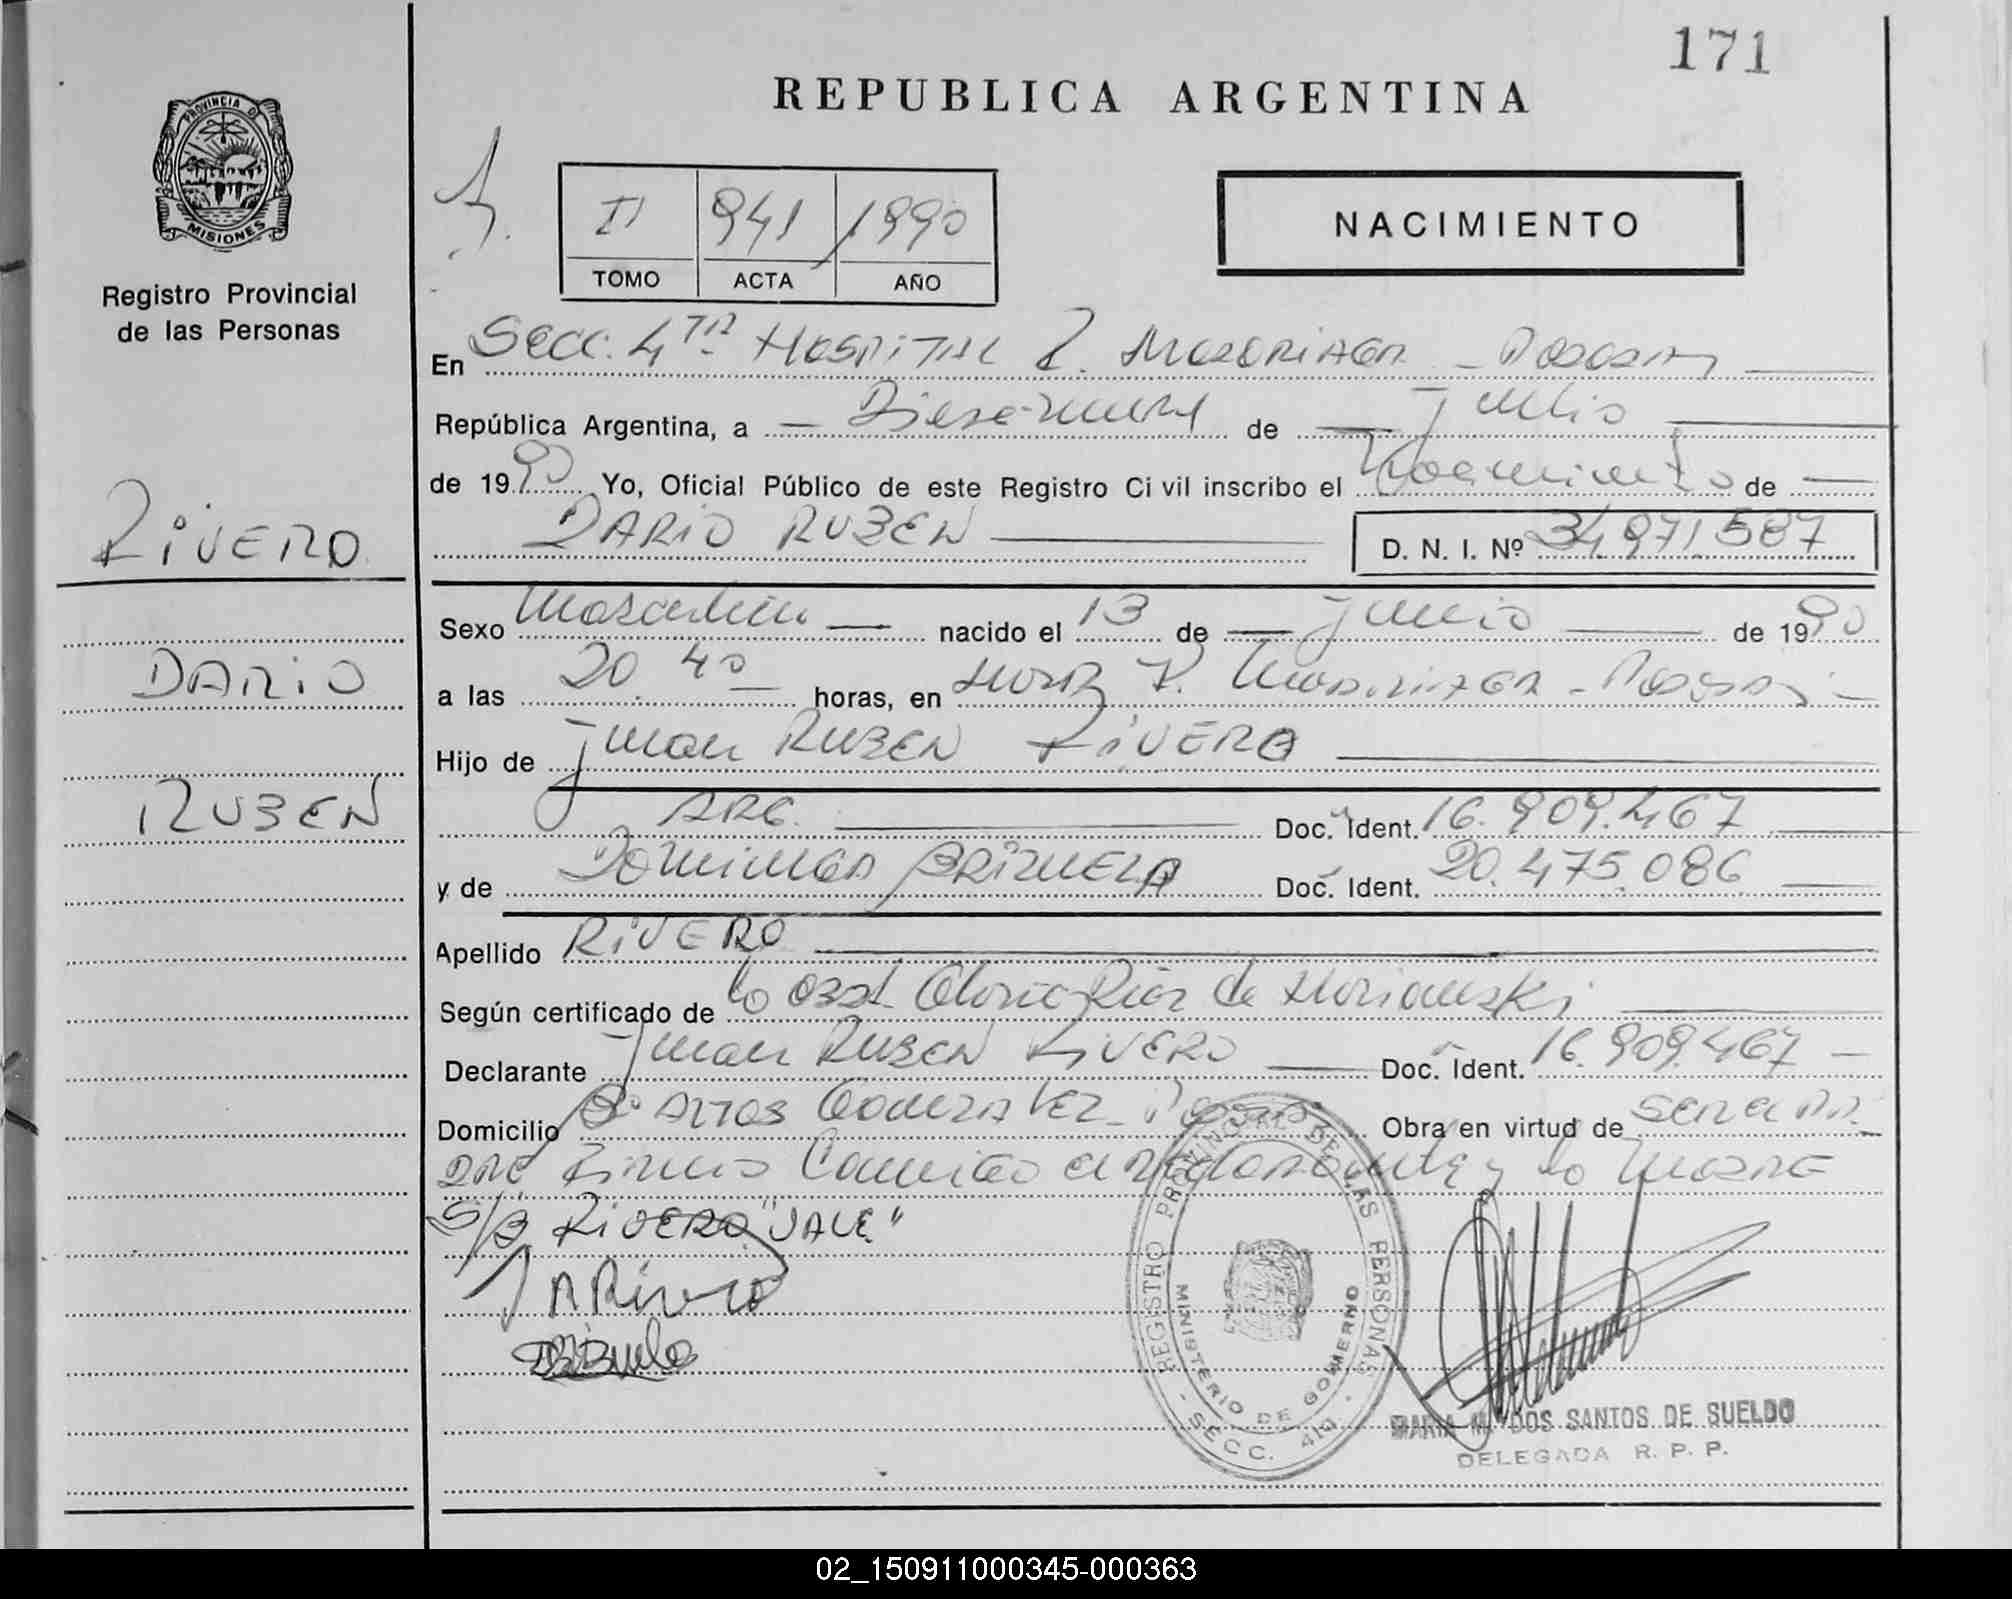 171
REPUBLICA ARGENTINA
PROVINCIA DE
MISIONES
Registro Provincial
de las Personas
II 941 1990
TOMO ACTA AÑO
NACIMIENTO
En Secc. 4ta Hospital R. Madariaga - Posadas
República Argentina, a Diecinueve de Julio
de 1990 Yo, Oficial Público de este Registro Civil inscribo el Nacimiento de
DARIO RUBEN D. N. I. Nº 34.971.587
RIVERO
DARIO
RUBEN
Sexo Masculino nacido el 13 de Junio de 1990
a las 20.40 horas, en Hosp R. Madariaga - Posadas
Hijo de Juan RUBEN RIVERO
ARG. Doc. Ident. 16.909.467
y de Dominga BRIZUELA Doc. Ident. 20.475.086
Apellido RIVERO
Según certificado de la Obst Gloria Ruiz de
Declarante Juan RUBEN RIVERO Doc. Ident. 16.909.467
Domicilio Gonzalez Posadas Obra en virtud de
Firma Conmigo el declarante y la Madre
S/B RIVERO "VALE"
REGISTRO PROVINCIAL DE LAS PERSONAS
MINISTERIO DE GOBIERNO
- SECC. 4ta -
MARIA M. DOS SANTOS DE SUELDO
DELEGADA R. P. P.
02_150911000345-000363